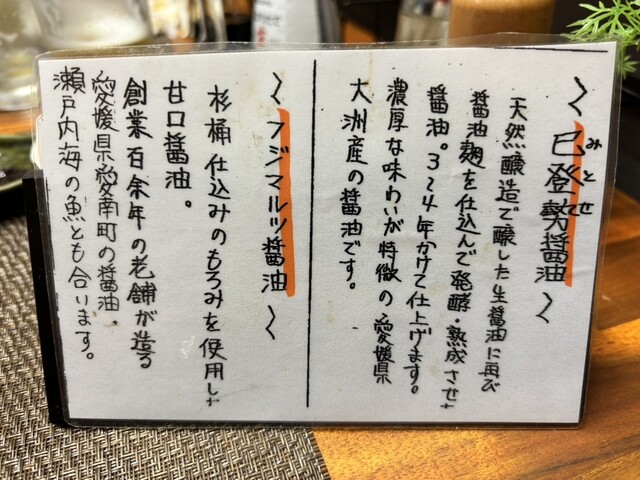 〜巳登勢醤油〜
みとせ
天然醸造で醸した生醤油に再び
醤油麹を仕込んで発酵・熟成させた
醤油。3〜4年かけて仕上げます。
濃厚な味わいが特徴の愛媛県
大洲産の醤油です。
〜フジマルツ醤油〜
杉桶仕込みのもろみを使用した
甘口醤油。
創業百余年の老舗が造る
愛媛県愛南町の醤油
瀬戸内海の魚とも合います。